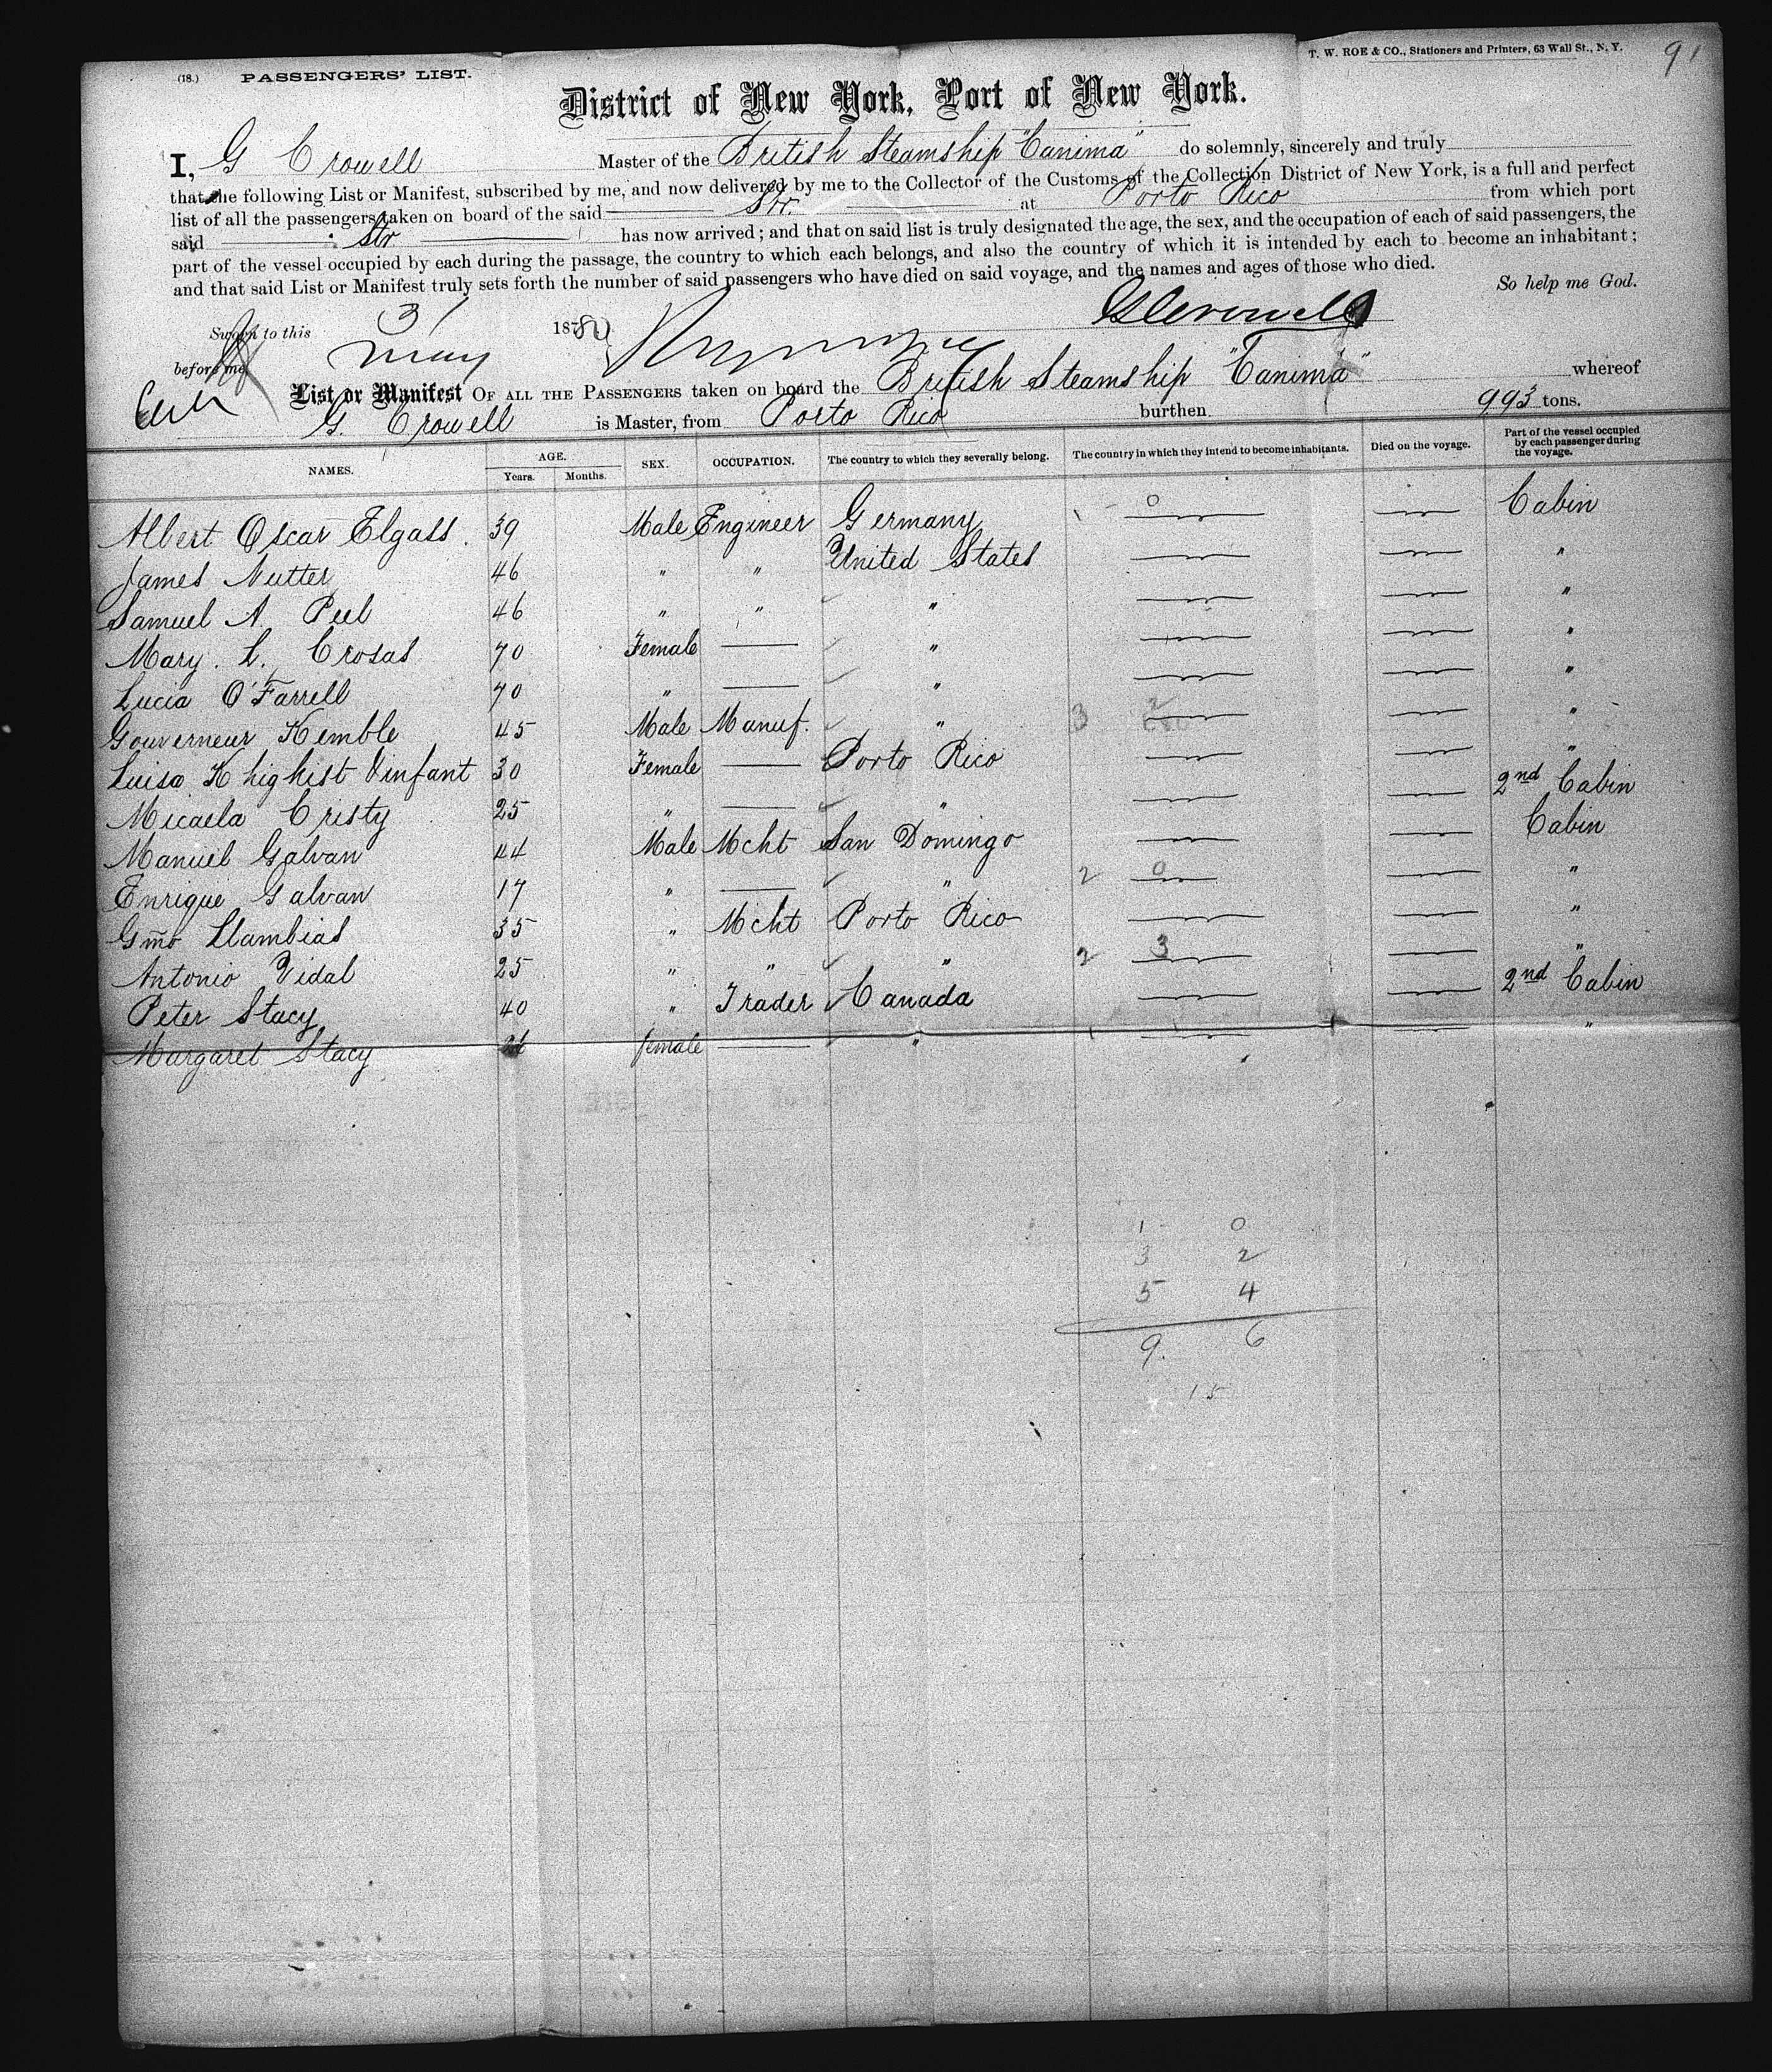 (18.) PASSENGERS' LIST.
T. W. ROE & CO., Stationers and Printers, 63 Wall St., N. Y.
91
District of New York, Port of New York.
I, G Crowell Master of the British Steamship "Canima" do solemnly, sincerely and truly
that the following List or Manifest, subscribed by me, and now delivered by me to the Collector of the Customs of the Collection District of New York, is a full and perfect
list of all the passengers taken on board of the said Str. at Porto Rico from which port
said Str has now arrived; and that on said list is truly designated the age, the sex, and the occupation of each of said passengers, the
part of the vessel occupied by each during the passage, the country to which each belongs, and also the country of which it is intended by each to become an inhabitant;
and that said List or Manifest truly sets forth the number of said passengers who have died on said voyage, and the names and ages of those who died.
So help me God.
Sworn to this 31 1880 G Crowell
before me May
List or Manifest OF ALL THE PASSENGERS taken on board the British Steamship "Canima" whereof
G. Crowell is Master, from Porto Rico burthen 993 tons.
NAMES. AGE. Years. Months. SEX. OCCUPATION. The country to which they severally belong. The country in which they intend to become inhabitants. Died on the voyage. Part of the vessel occupied by each passenger during the voyage.
Albert Oscar Elgass. 39 Male Engineer Germany 1 0 Cabin
James Nutter 46 " " United States "
Samuel A. Peel 46 " " " "
Mary. L. Crosas 70 Female — " "
Lucia O'Farrell 70 " — " "
Gouverneur Kemble 45 Male Manuf. " 3 2 "
Luisa Khighist & infant 30 Female — Porto Rico "
Micaela Cristy 25 " — " 2nd Cabin
Manuel Galvan 44 Male Mcht San Domingo Cabin
Enrique Galvan 17 " — " 2 0 "
Gmo Llambias 35 " Mcht Porto Rico "
Antonio Vidal 25 " " " 2 3 "
Peter Stacy 40 " Trader Canada 2nd Cabin
Margaret Stacy female — " 1 1 "
1 0
3 2
5 4
9. 6
15